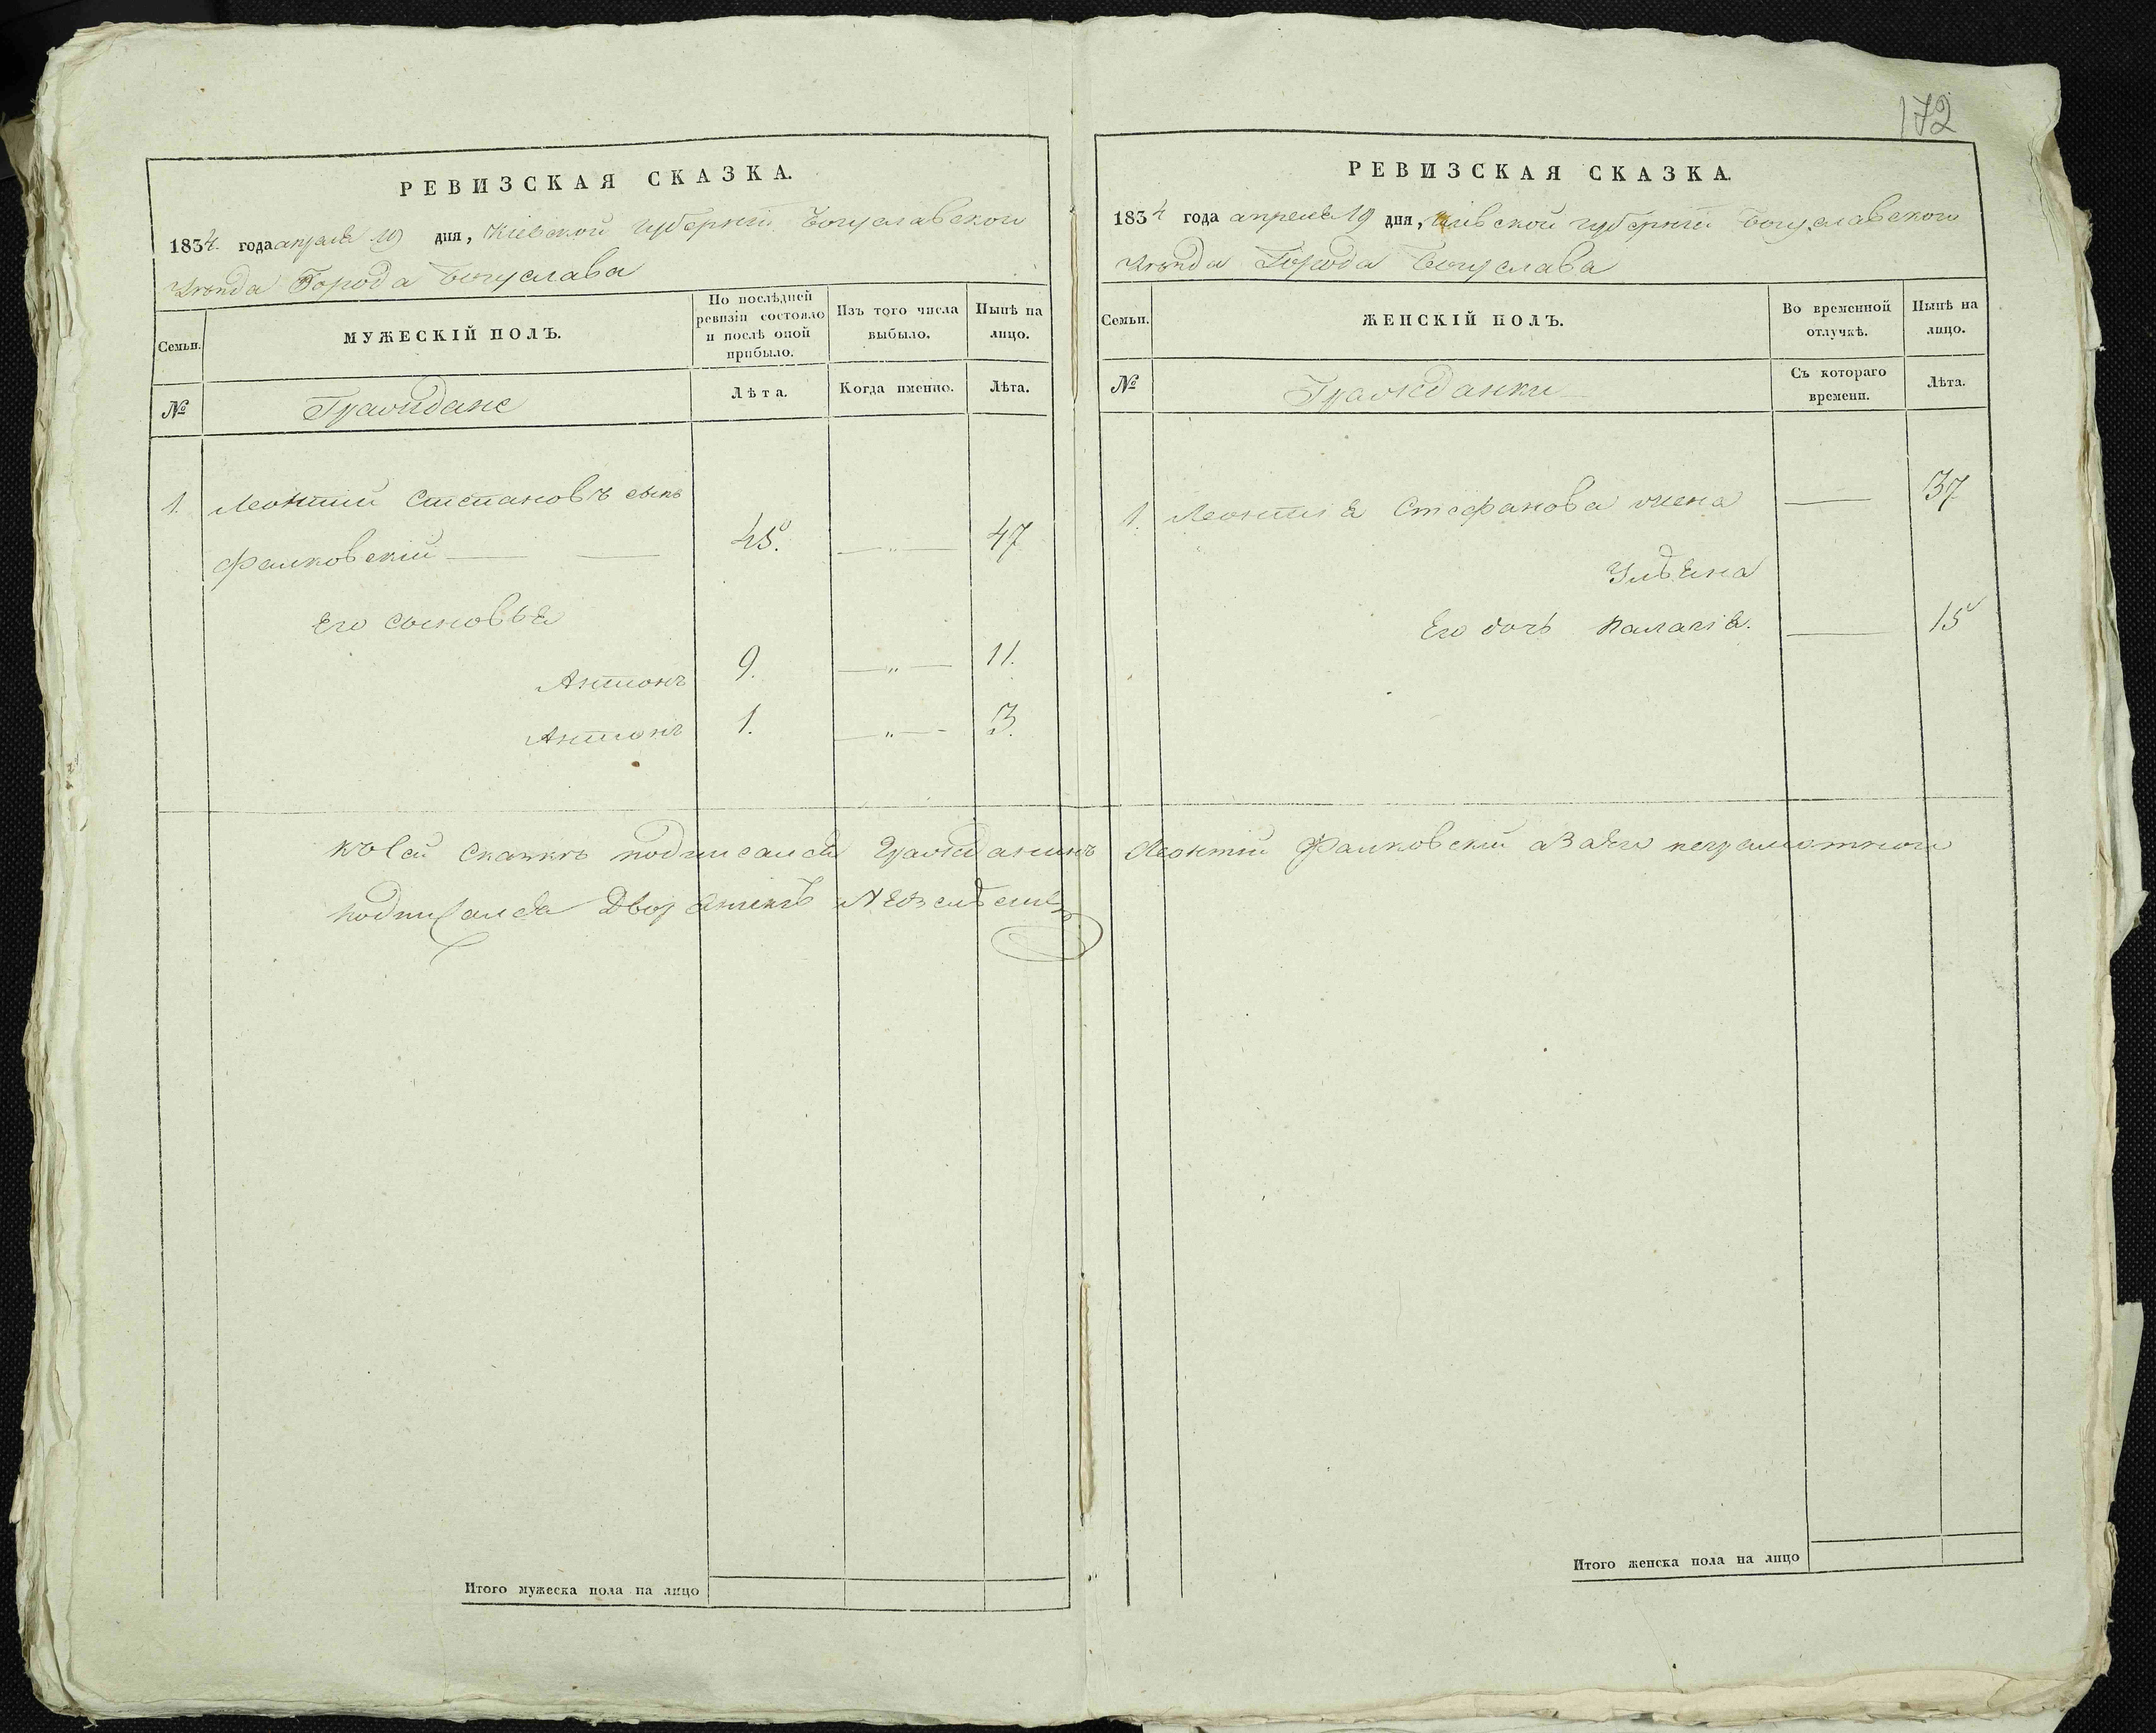 172
РЕВИЗСКАЯ СКАЗКА.
1834. года апреля 19 дня, Кіевской губерніи Богуславского
Уѣзда Города Богуслава
Семьи.
МУЖЕСКІЙ ПОЛЪ.
По послѣдней ревизіи состояло и послѣ оной прибыло.
Изъ того числа выбыло.
Нынѣ на лицо.
№
Граждане
Лѣта.
Когда именно.
Лѣта.
1. Леонтий Степановъ сынъ
Фалковскій 45. — „ — 47
Его сыновья
Антонъ 9. — „ — 11.
Антонъ 1. — „ — 3.
РЕВИЗСКАЯ СКАЗКА.
1834 года апреля 19 дня, Кіевской губерніи Богуславского
Уѣзда Города Богуслава
Семьи.
ЖЕНСКІЙ ПОЛЪ.
Во временной отлучкѣ.
Нынѣ на лицо.
№
Гражданки
Съ котораго времени.
Лѣта.
1. Леонтия Стефанова жена — 37
Ульяна
Его дочь Палагія. — 15
къ сей скаскѣ подписался Гражданинъ Леонтій Фалковскій а За его неграмотного
подписался Дворянинъ
Итого мужеска пола на лицо
Итого женска пола на лицо